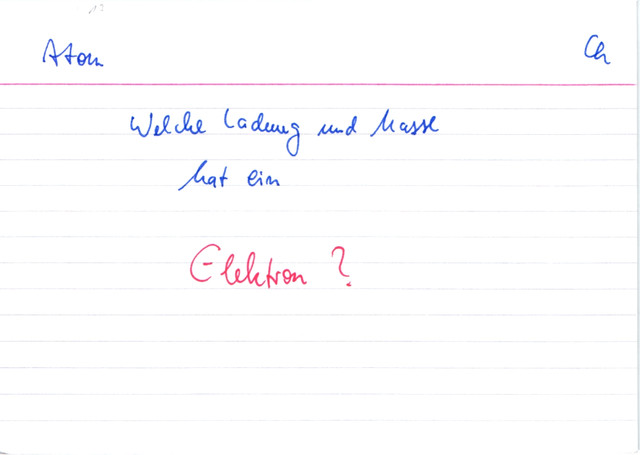 Atom
Ch
Welche Ladung und Masse
hat ein
Elektron ?